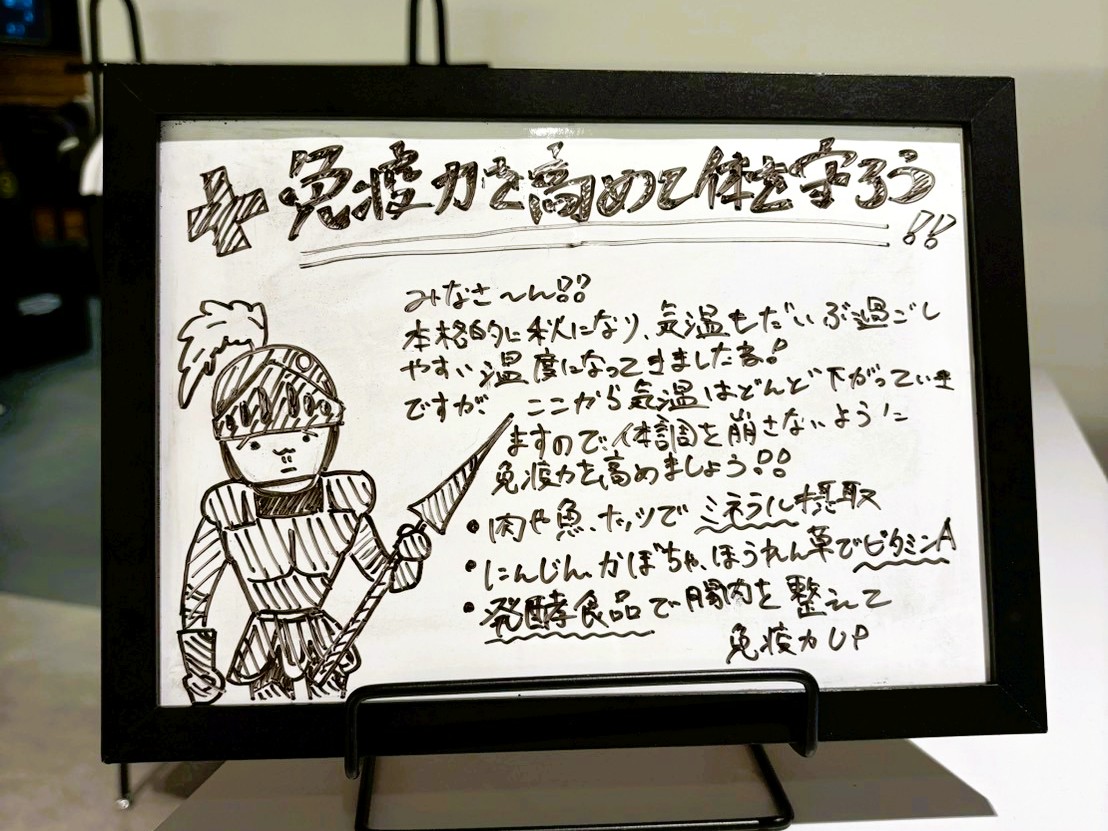 免疫力を高めて体を守ろう!!
みなさ〜ん!!
本格的に秋になり、気温もだいぶ過ごし
やすい温度になってきましたね!
ですが、ここから気温はどんどん下がっていき
ますので、体調を崩さないように
免疫力を高めましょう!!
・肉や魚、ナッツでミネラル摂取
・にんじん、かぼちゃ、ほうれん草でビタミンA
・発酵食品で腸内を整えて
免疫力UP